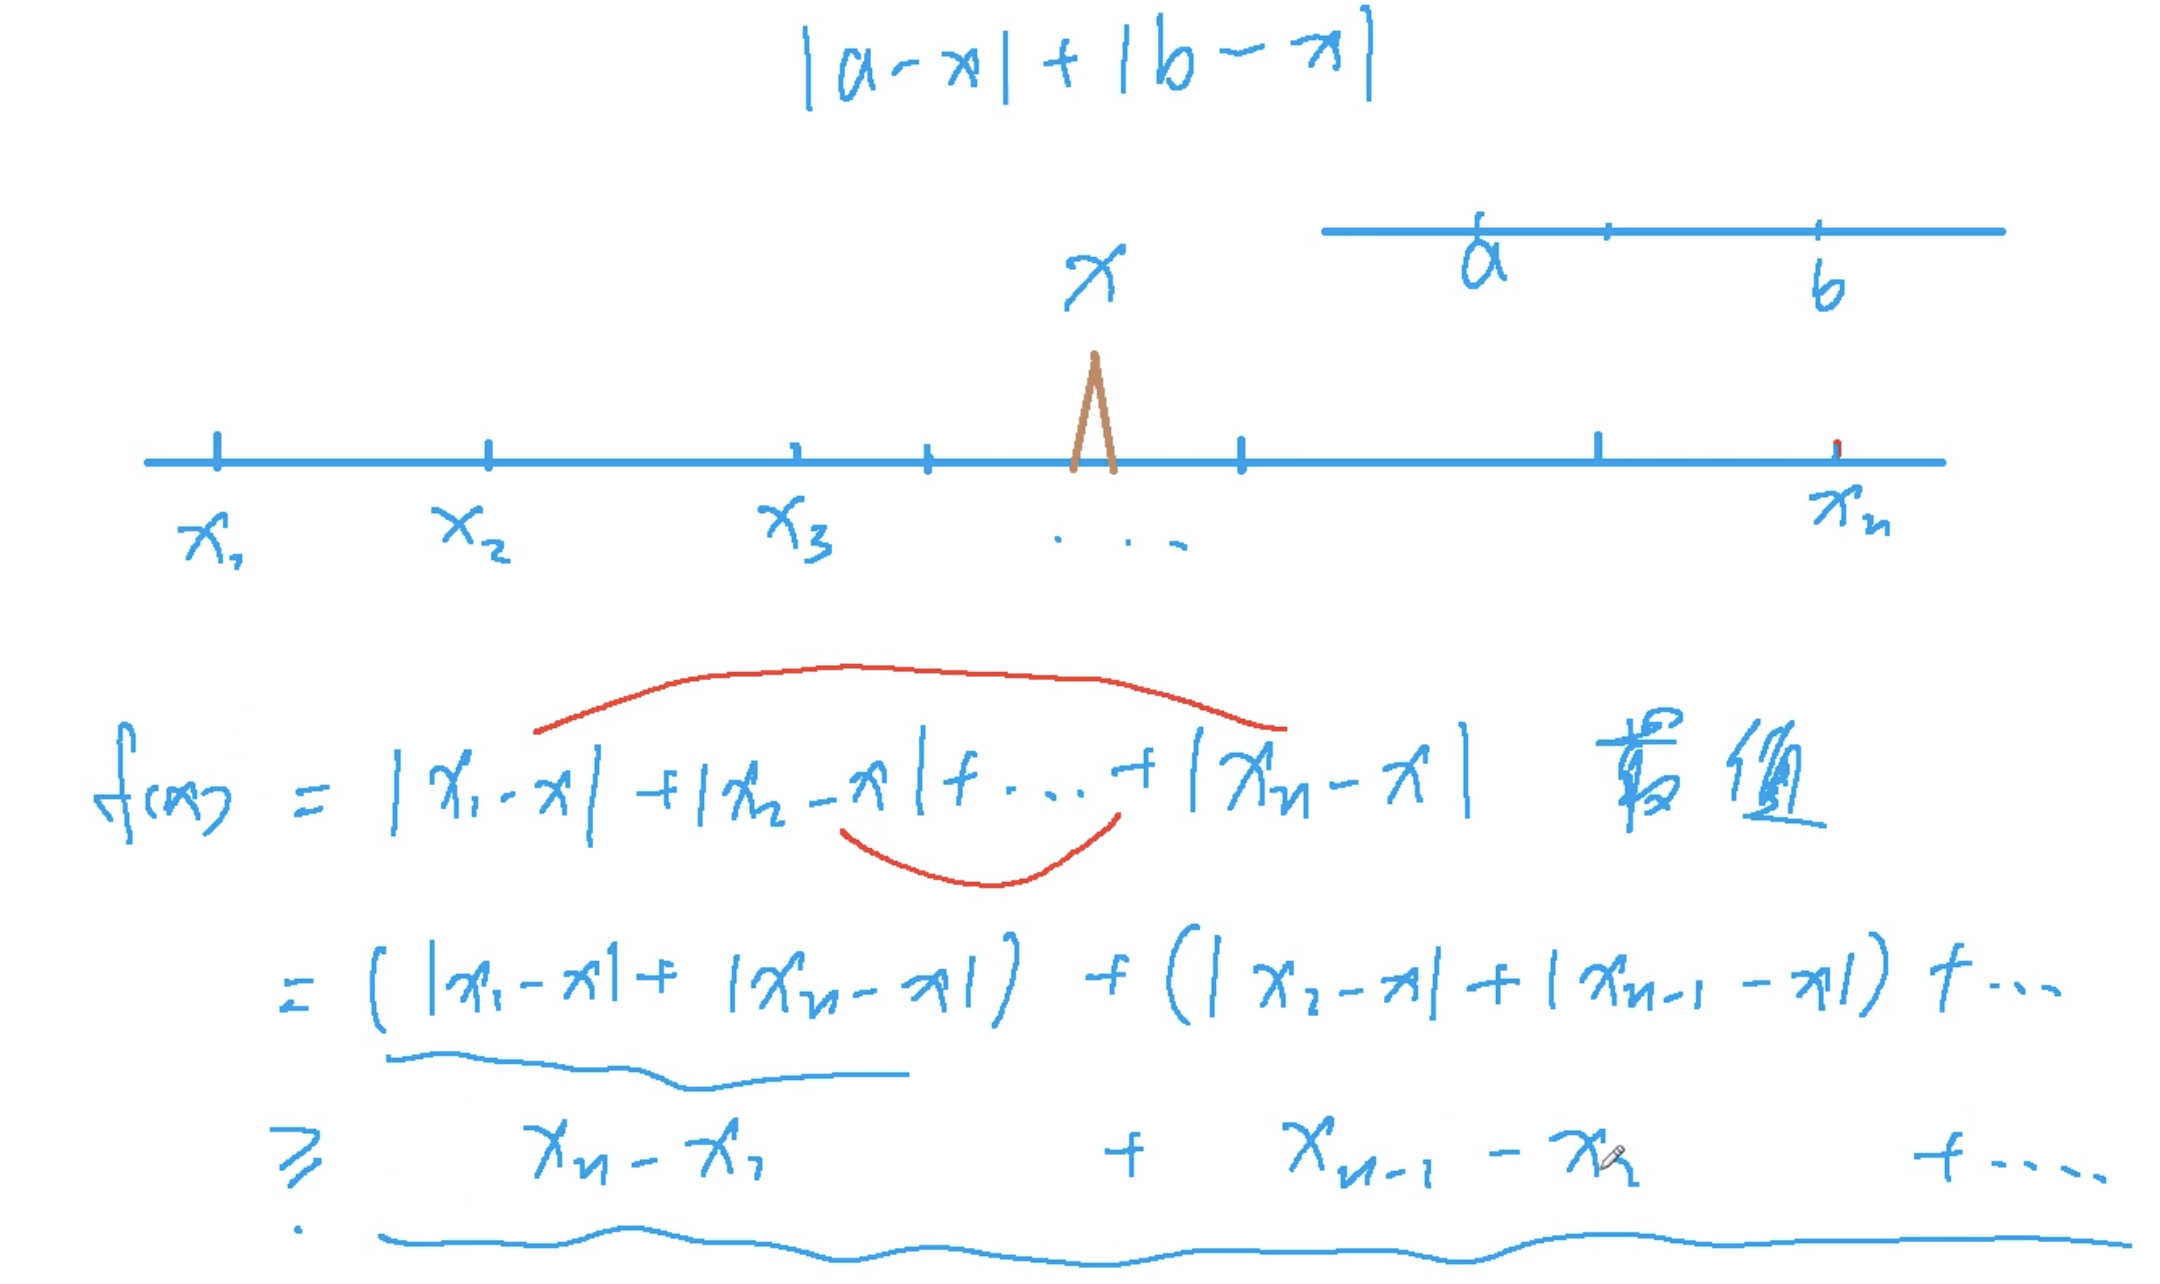 |a-x|+|b-x|
a b
x
x₁ x₂ x₃ ... xₙ
f(x) = |x₁-x|+|x₂-x|+...+|xₙ-x|
= (|x₁-x|+|xₙ-x|) + (|x₂-x|+|xₙ₋₁-x|)+...
≥ xₙ-x₁ + xₙ₋₁-x₂ +....